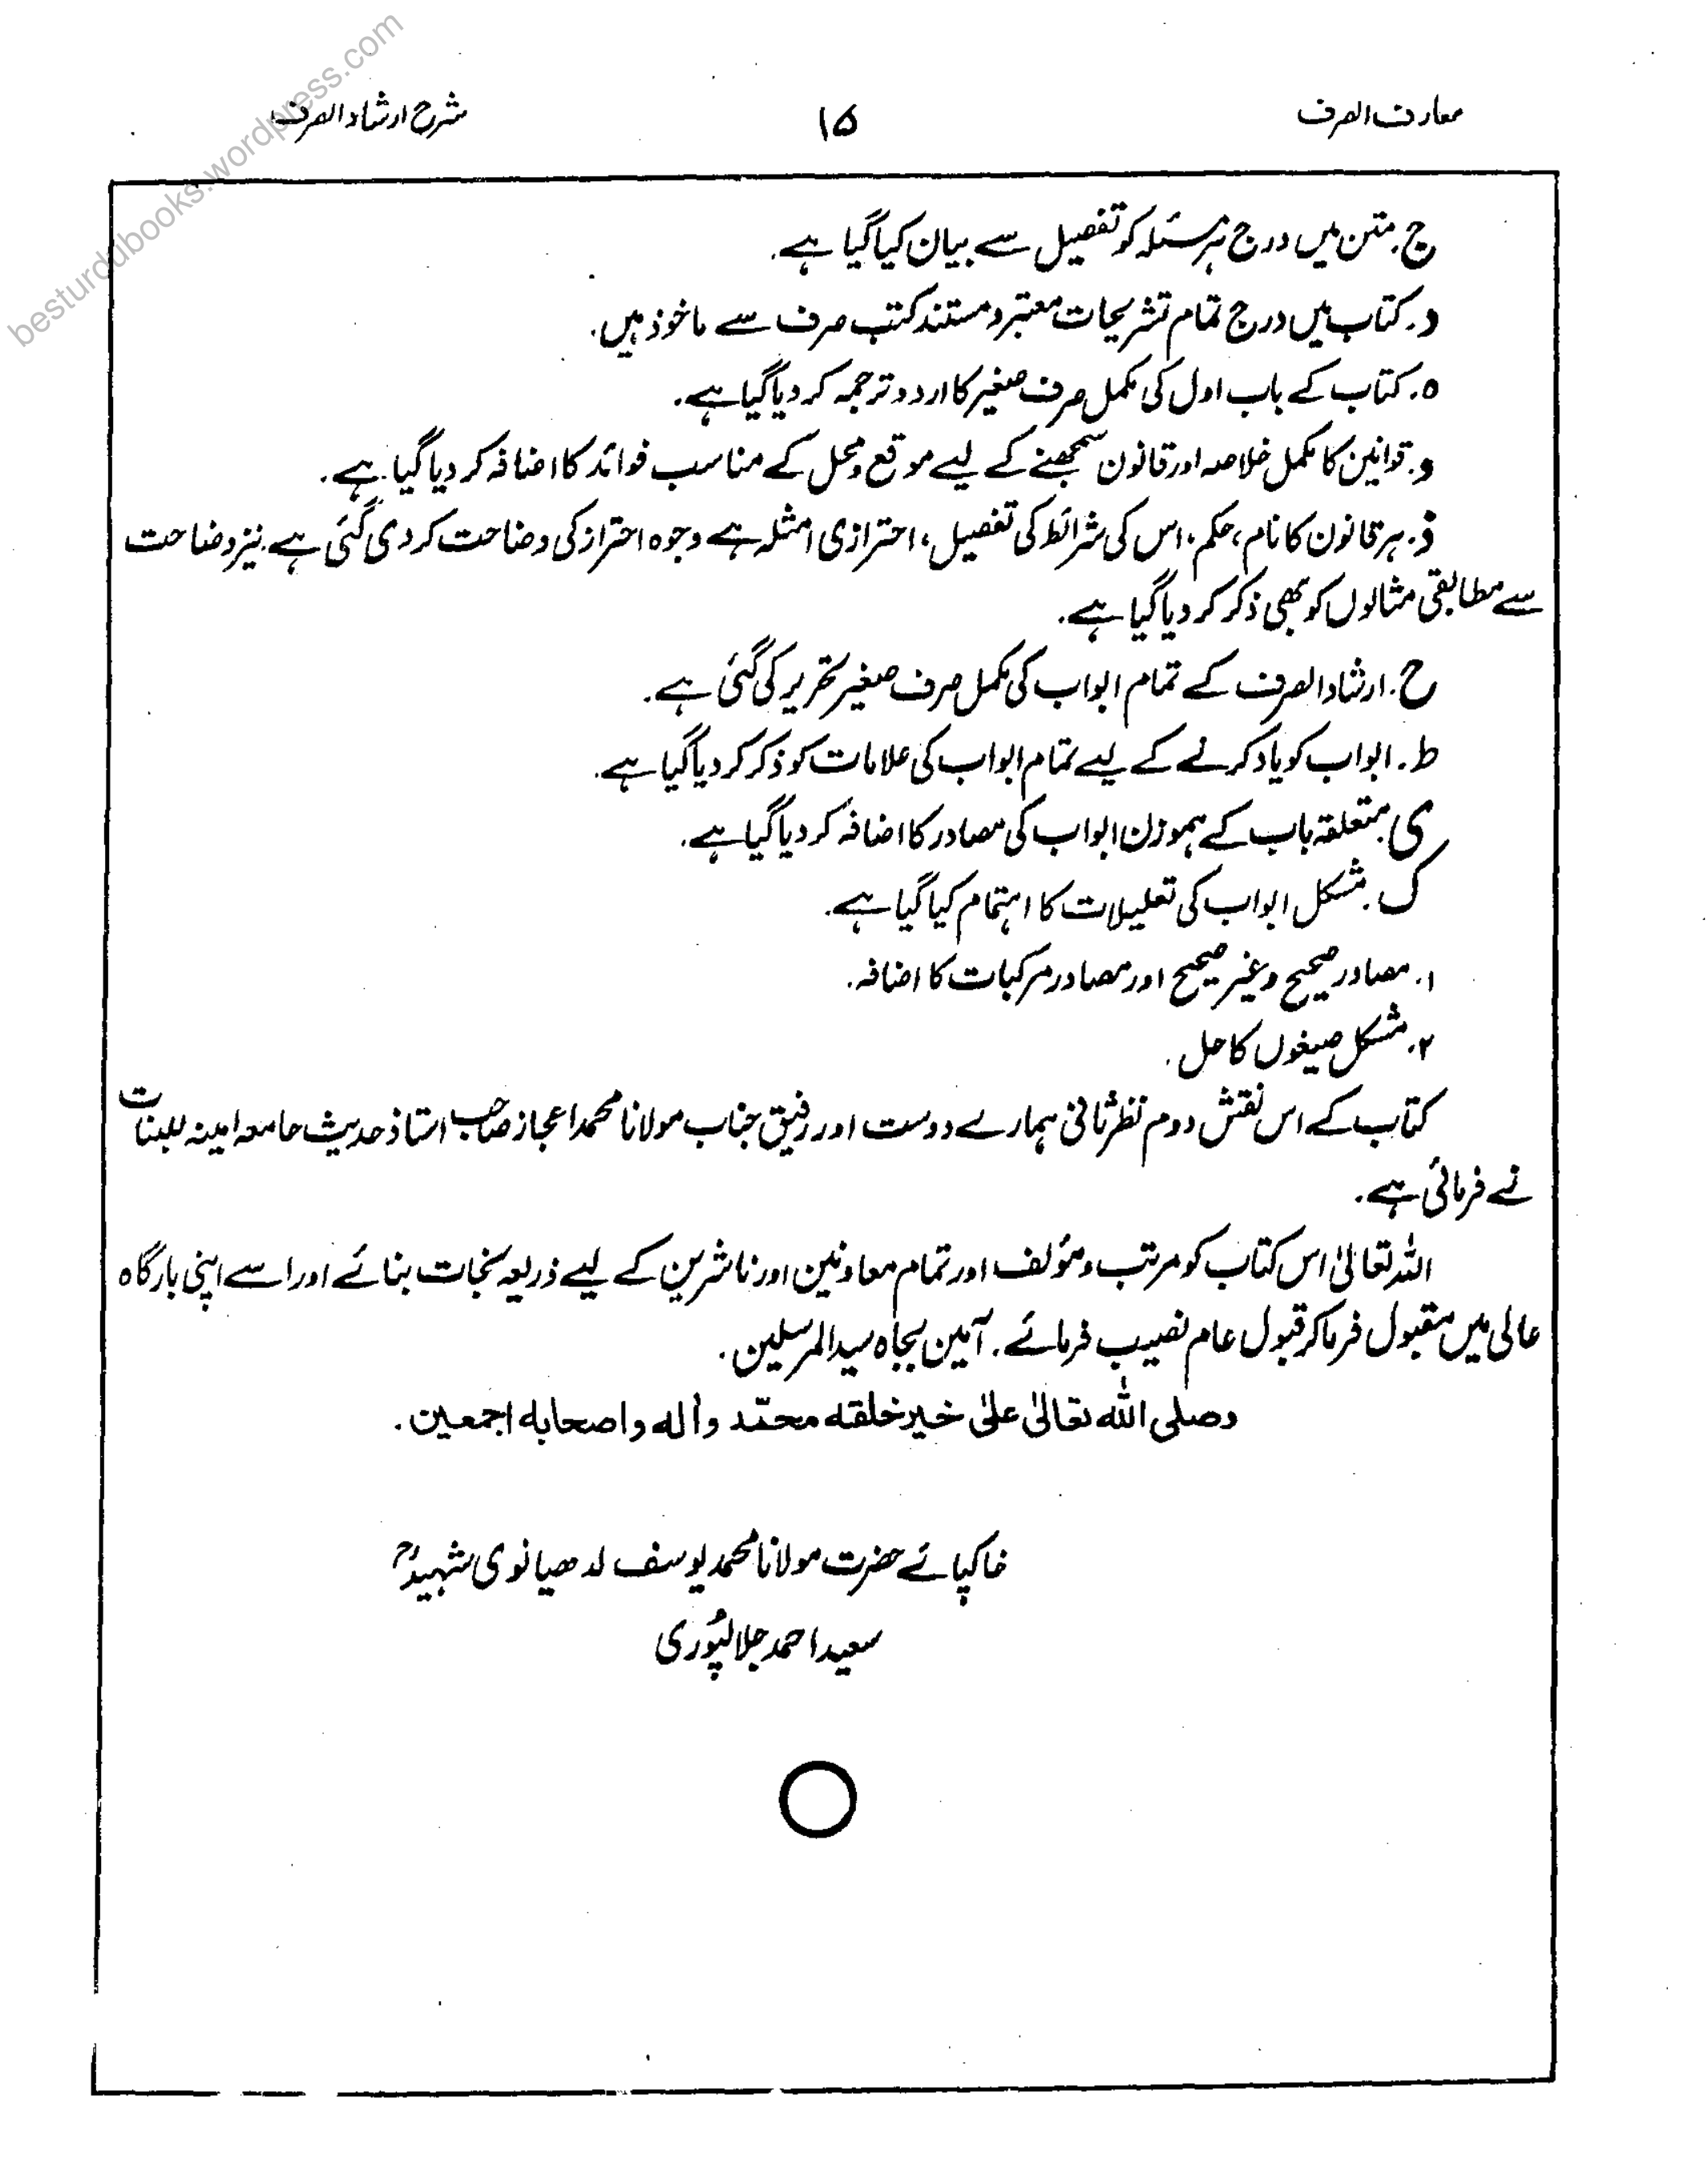 معارف الصرف
۱۵
شرح ارشاد الصرف
besturdubooks.wordpress.com
ج. متن میں درج ہر مسئلہ کو تفصیل سے بیان کیا گیا ہے.
د. کتاب میں درج تمام تشریحات معتبر و مستند کتب صرف سے ماخوذ ہیں.
ہ. کتاب کے باب اول کی مکمل صرف صغیر کا اردو ترجمہ کر دیا گیا ہے.
و. قوانین کا مکمل خلاصہ اور قانون سمجھنے کے لیے موقع و محل کے مناسب فوائد کا اضافہ کر دیا گیا ہے.
ذ. ہر قانون کا نام، حکم، اس کی شرائط کی تفصیل، احترازی امثلہ ہے وجوہ احتراز کی وضاحت کر دی گئی ہے. نیز وضاحت
سے مطابقی مثالوں کو بھی ذکر کر دیا گیا ہے.
ح. ارشاد الصرف کے تمام ابواب کی مکمل صرف صغیر تحریر کی گئی ہے.
ط. ابواب کو یاد کرنے کے لیے تمام ابواب کی علامات کو ذکر کر دیا گیا ہے.
ی. متعلقہ باب کے ہموزن ابواب کی مصادر کا اضافہ کر دیا گیا ہے.
ک. مشکل ابواب کی تعلیلات کا اہتمام کیا گیا ہے.
۱. مصادر صحیح و غیر صحیح اور مصادر مرکبات کا اضافہ.
۲. مشکل صیغوں کا حل.
کتاب کے اس نقش دوم نظر ثانی ہمارے دوست اور رفیق جناب مولانا محمد اعجاز صاحب استاذ حدیث جامعہ امینہ للبنات
نے فرمائی ہے.
اللہ تعالیٰ اس کتاب کو مرتب و مؤلف اور تمام معاونین اور ناشرین کے لیے ذریعہ نجات بنائے اور اسے اپنی بارگاہ
عالی میں مقبول فرما کر قبول عام نصیب فرمائے. آمین بجاہ سید المرسلین.
وصلی اللہ تعالیٰ علیٰ خیر خلقہ محمّد وآلہ واصحابہ اجمعین.
خاکپائے حضرت مولانا محمد یوسف لدھیانوی شہیدؒ
سعید احمد جلالپوری